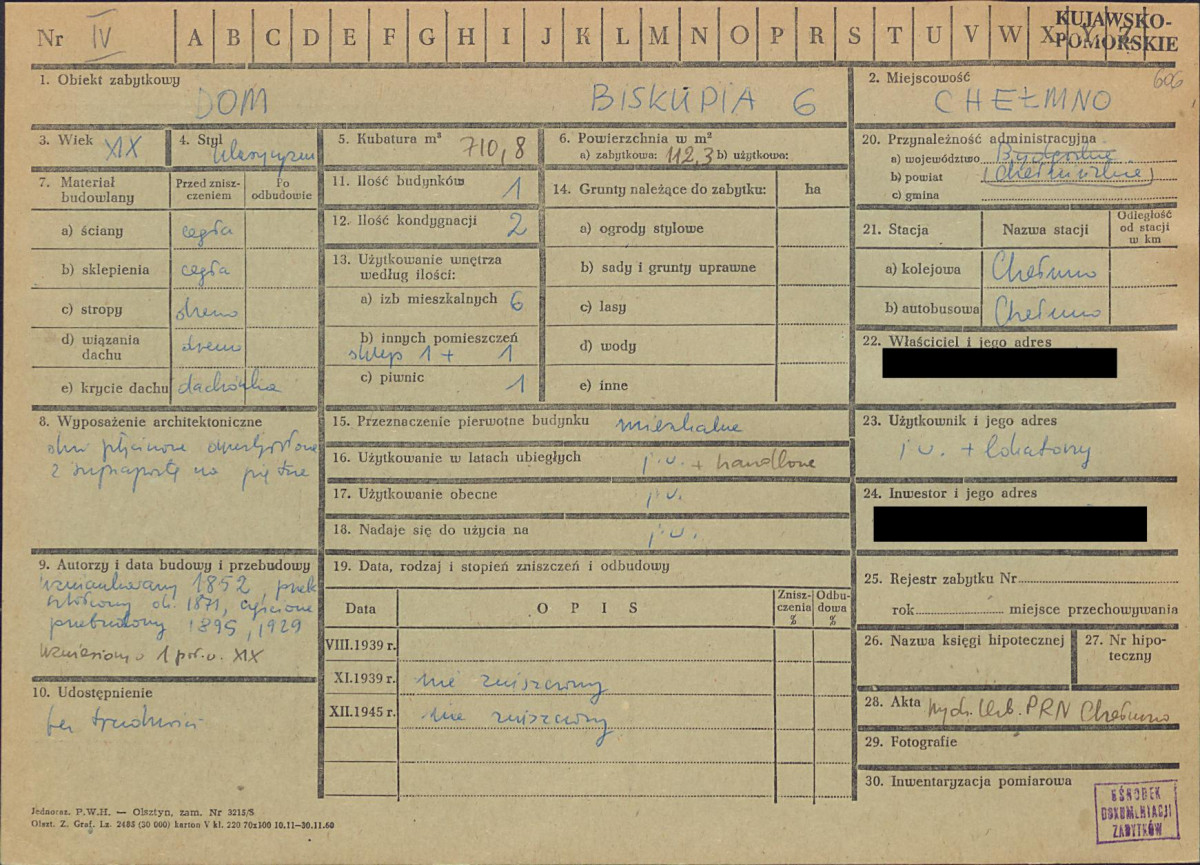 Nr IV A B C D E F G H I J K L M N O P R S T U V W X Y Z
KUJAWSKO-
POMORSKIE
1. Obiekt zabytkowy
DOM BISKUPIA 6
2. Miejscowość 606
CHEŁMNO
3. Wiek XIX
4. Styl klasycyzm
5. Kubatura m³ 710,8
6. Powierzchnia w m²
a) zabytkowa: 112,3 b) użytkowa:
7. Materiał budowlany
Przed zniszczeniem
Po odbudowie
a) ściany cegła
b) sklepienia cegła
c) stropy drewno
d) wiązania dachu drewno
e) krycie dachu dachówka
8. Wyposażenie architektoniczne
drzwi płycinowe
z supraportą na piętrze
9. Autorzy i data budowy i przebudowy
Wzmiankowany 1852, przek
ształcony ok. 1871, częściowo
przebudowany 1895, 1929
Wzniesiony 1 poł. w. XIX
10. Udostępnienie
bez trudności
11. Ilość budynków 1
12. Ilość kondygnacji 2
13. Użytkowanie wnętrza
według ilości:
a) izb mieszkalnych 6
b) innych pomieszczeń
sklep 1 + 1
c) piwnic 1
14. Grunty należące do zabytku: ha
a) ogrody stylowe
b) sady i grunty uprawne
c) lasy
d) wody
e) inne
15. Przeznaczenie pierwotne budynku mieszkalne
16. Użytkowanie w latach ubiegłych j.w. + handlowe
17. Użytkowanie obecne j.w.
18. Nadaje się do użycia na j.w.
19. Data, rodzaj i stopień zniszczeń i odbudowy
Data
O P I S
Zniszczenia %
Odbudowa %
VIII.1939 r.
XI.1939 r. nie zniszczony
XII.1945 r. nie zniszczony
20. Przynależność administracyjna
a) województwo Bydgoskie
b) powiat (chełmińskie)
c) gmina
21. Stacja
Nazwa stacji
Odległość od stacji w km
a) kolejowa Chełmno
b) autobusowa Chełmno
22. Właściciel i jego adres
23. Użytkownik i jego adres
j.w. + lokatorzy
24. Inwestor i jego adres
25. Rejestr zabytku Nr
rok miejsce przechowywania
26. Nazwa księgi hipotecznej
27. Nr hipoteczny
28. Akta PRN Chełmno
29. Fotografie
30. Inwentaryzacja pomiarowa
OŚRODEK
DOKUMENTACJI
ZABYTKÓW
Jednoraz. P.W.H. — Olsztyn, zam. Nr 3215/S
Olszt. Z. Graf. Lz. 2485 (30 000) karton V kl. 220 70x100 10.11—30.11.60